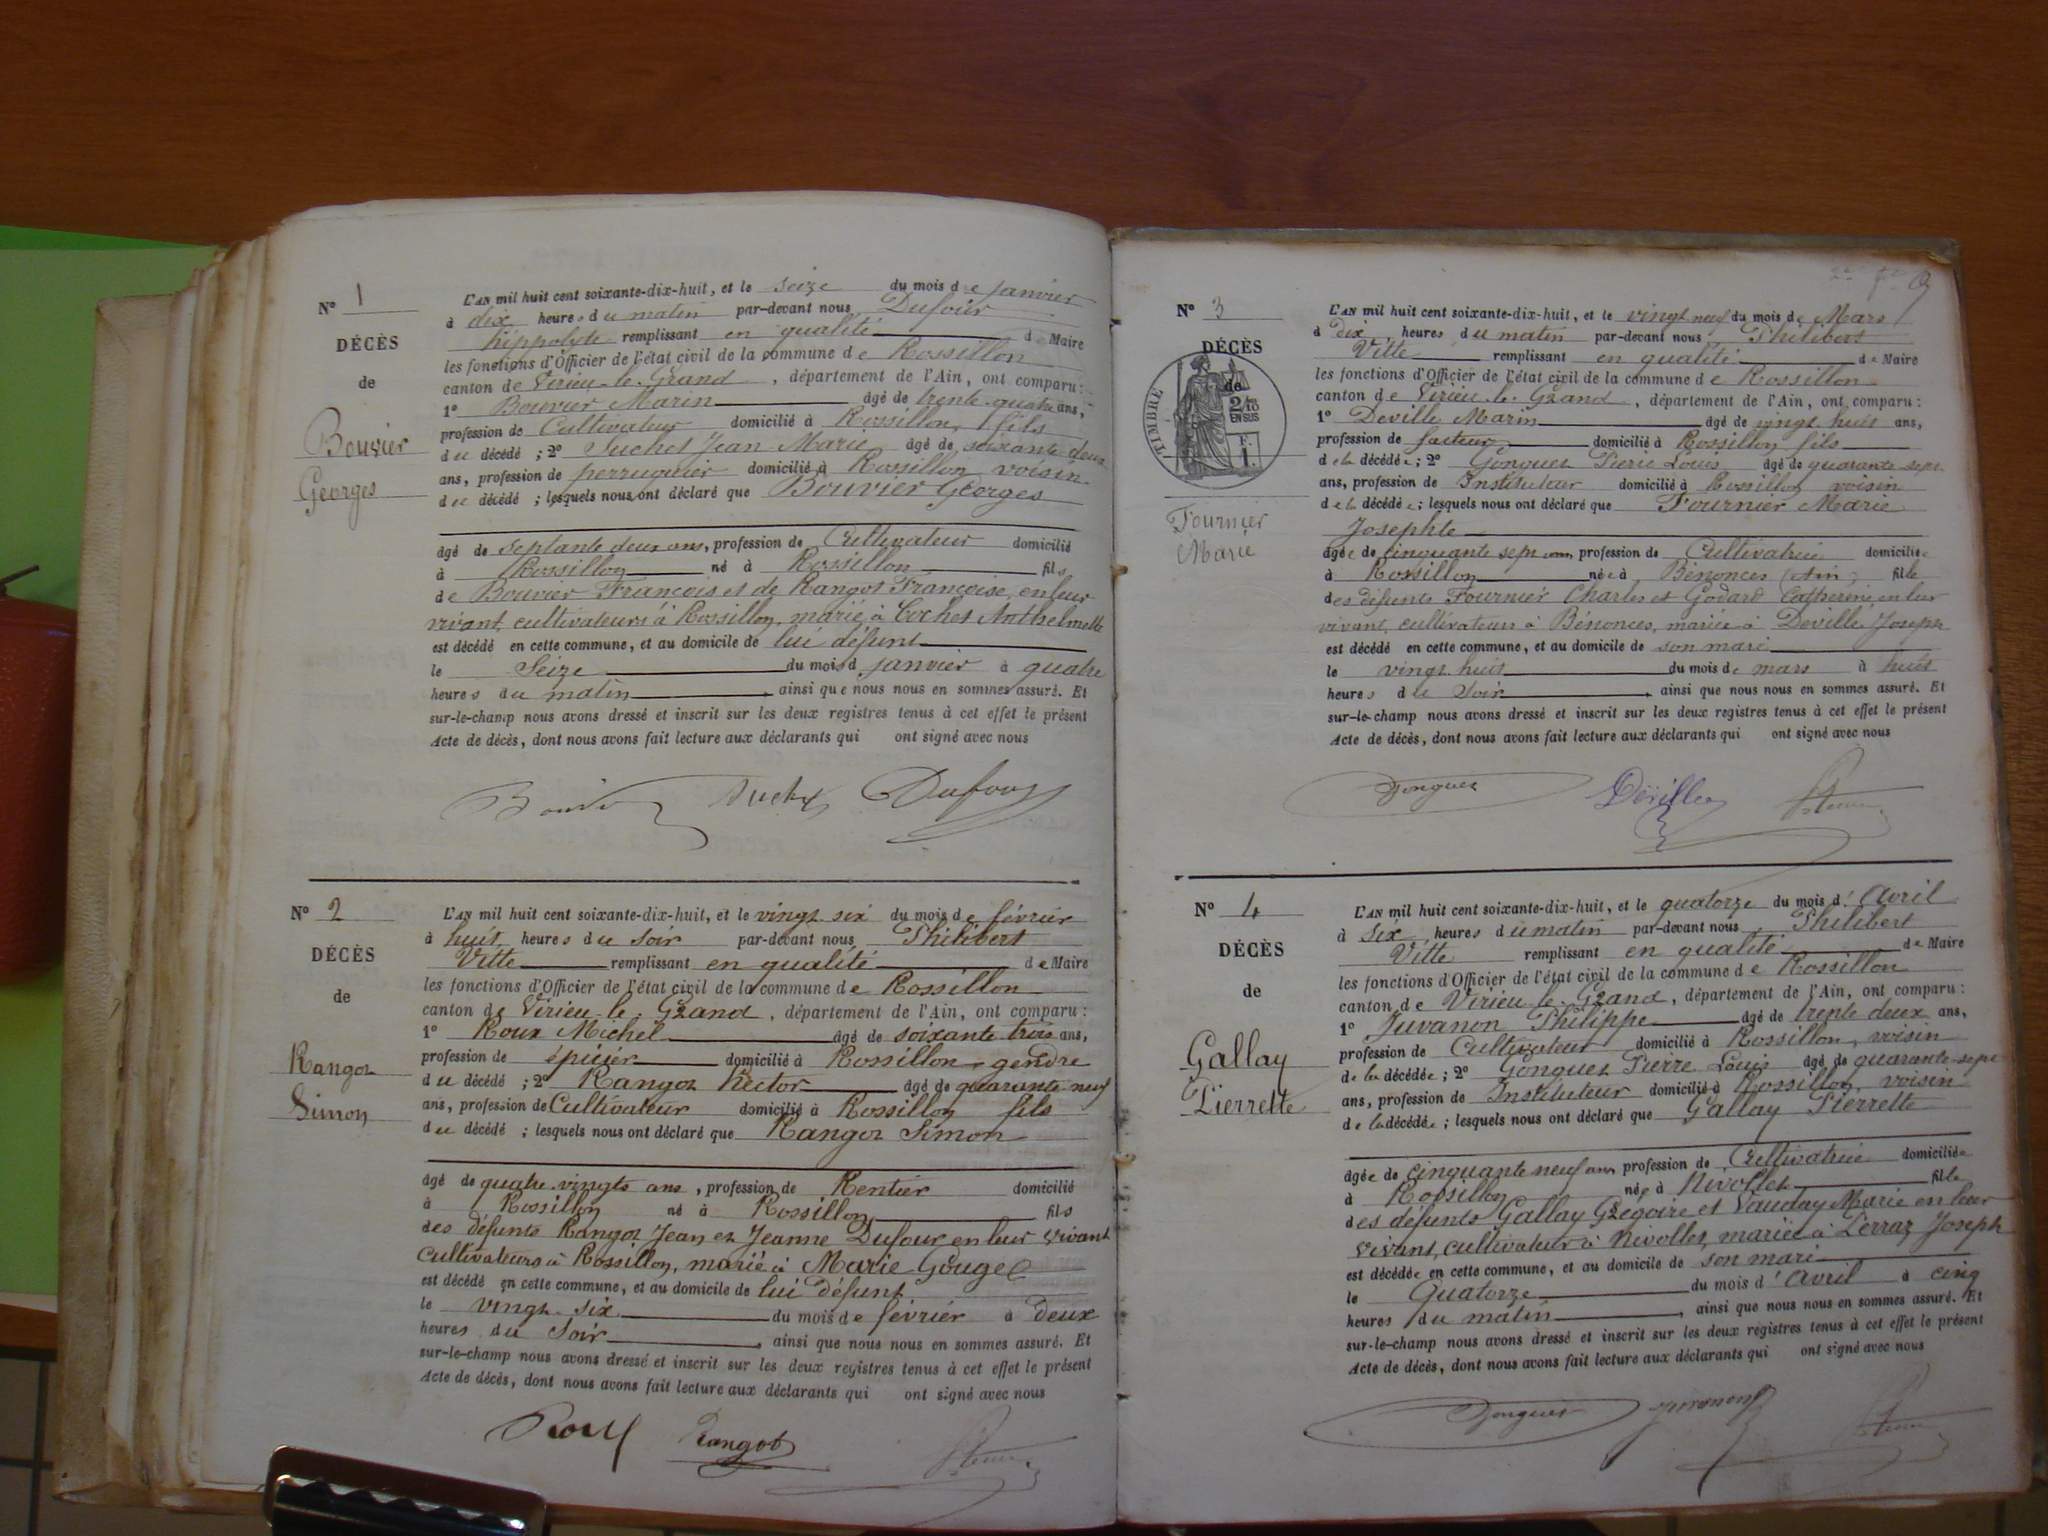 N° 1
DÉCÈS
de
Bouvier
Georges
L'AN mil huit cent soixante-dix-huit, et le seize du mois de janvier
à dix heures du matin par-devant nous Dufour
hippolyte remplissant en qualité de Maire
les fonctions d'Officier de l'état civil de la commune de Rossillon
canton de Virieu-le-Grand, département de l'Ain, ont comparu :
1° Bouvier Marin âgé de trente quatre ans,
profession de Cultivateur domicilié à Rossillon, fils
du décédé ; 2° Suchet Jean Marie âgé de soixante deux
ans, profession de perruquier domicilié à Rossillon voisin
du décédé ; lesquels nous ont déclaré que Bouvier Georges
âgé de septante deux ans, profession de Cultivateur domicilié
à Rossillon né à Rossillon fils
de Bouvier François et de Rangot Françoise, en leur
vivant cultivateurs à Rossillon, marié à Cochet Anthelmette
est décédé en cette commune, et au domicile de lui défunt
le Seize du mois d janvier à quatre
heures du matin, ainsi que nous nous en sommes assuré. Et
sur-le-champ nous avons dressé et inscrit sur les deux registres tenus à cet effet le présent
Acte de décès, dont nous avons fait lecture aux déclarants qui ont signé avec nous
Bouvier Suchet Dufour
N° 2
DÉCÈS
de
Rangot
Simon
L'AN mil huit cent soixante-dix-huit, et le vingt six du mois de février
à huit heures du soir par-devant nous Philibert
Vitte remplissant en qualité de Maire
les fonctions d'Officier de l'état civil de la commune de Rossillon
canton de Virieu-le-Grand, département de l'Ain, ont comparu :
1° Roux Michel âgé de soixante trois ans,
profession de épicier domicilié à Rossillon gendre
du décédé ; 2° Rangot hector âgé de quarante neuf
ans, profession de Cultivateur domicilié à Rossillon fils
du décédé ; lesquels nous ont déclaré que Rangot Simon
âgé de quatre-vingts ans, profession de Rentier domicilié
à Rossillon né à Rossillon fils
des défunts Rangot Jean et Jeanne Dufour en leur vivant
cultivateurs à Rossillon, marié à Marie Gouget
est décédé en cette commune, et au domicile de lui défunt
le vingt six du mois de février à deux
heures du Soir, ainsi que nous nous en sommes assuré. Et
sur-le-champ nous avons dressé et inscrit sur les deux registres tenus à cet effet le présent
Acte de décès, dont nous avons fait lecture aux déclarants qui ont signé avec nous
Roux Rangot
N° 3
DÉCÈS
de
TIMBRE
2/10
EN SUS
F.
1.
Fournier
Marie
L'AN mil huit cent soixante-dix-huit, et le vingt neuf du mois de Mars
à Dix heures du matin par-devant nous Philibert
Vitte remplissant en qualité de Maire
les fonctions d'Officier de l'état civil de la commune de Rossillon
canton de Virieu-le-Grand, département de l'Ain, ont comparu :
1° Deville Marin âgé de vingt huit ans,
profession de facteur domicilié à Rossillon fils
de la décédée ; 2° Gonguet Pierre Louis âgé de quarante sept
ans, profession de Instituteur domicilié à Rossillon voisin
de la décédée ; lesquels nous ont déclaré que Fournier Marie
Josephte
âgée de cinquante sept ans, profession de Cultivatrice domiciliée
à Rossillon née à Bénonces (Ain) fille
des défunts Fournier Charles et Godard Catherine en leur
vivant, cultivateurs à Bénonces, mariée à Deville Joseph
est décédé en cette commune, et au domicile de son mari
le vingt huit du mois de mars à huit
heures du Soir, ainsi que nous nous en sommes assuré. Et
sur-le-champ nous avons dressé et inscrit sur les deux registres tenus à cet effet le présent
Acte de décès, dont nous avons fait lecture aux déclarants qui ont signé avec nous
Gonguet Deville
N° 4
DÉCÈS
de
Gallay
Pierrette
L'AN mil huit cent soixante-dix-huit, et le quatorze du mois d'Avril
à six heures du matin par-devant nous Philibert
Vitte remplissant en qualité de Maire
les fonctions d'Officier de l'état civil de la commune de Rossillon
canton de Virieu-le-Grand, département de l'Ain, ont comparu :
1° Juvanon Philippe âgé de trente deux ans,
profession de Cultivateur domicilié à Rossillon, voisin
de la décédée ; 2° Gonguet Pierre Louis âgé de quarante sept
ans, profession de Instituteur domicilié à Rossillon, voisin
de la décédée ; lesquels nous ont déclaré que Gallay Pierrette
âgée de cinquante neuf ans profession de Cultivatrice domiciliée
à Rossillon née à Nivollet fille
des défunts Gallay Grégoire et Vauday Marie en leur
vivant, cultivateur à Nivollet, mariée à Perraz Joseph
est décédée en cette commune, et au domicile de son mari
le Quatorze du mois d'Avril à cinq
heures du matin, ainsi que nous nous en sommes assuré. Et
sur-le-champ nous avons dressé et inscrit sur les deux registres tenus à cet effet le présent
Acte de décès, dont nous avons fait lecture aux déclarants qui ont signé avec nous
Gonguet Juvanon